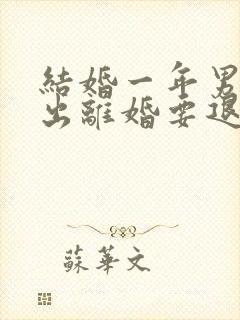 結婚一年男
出離婚要退
蘇華文